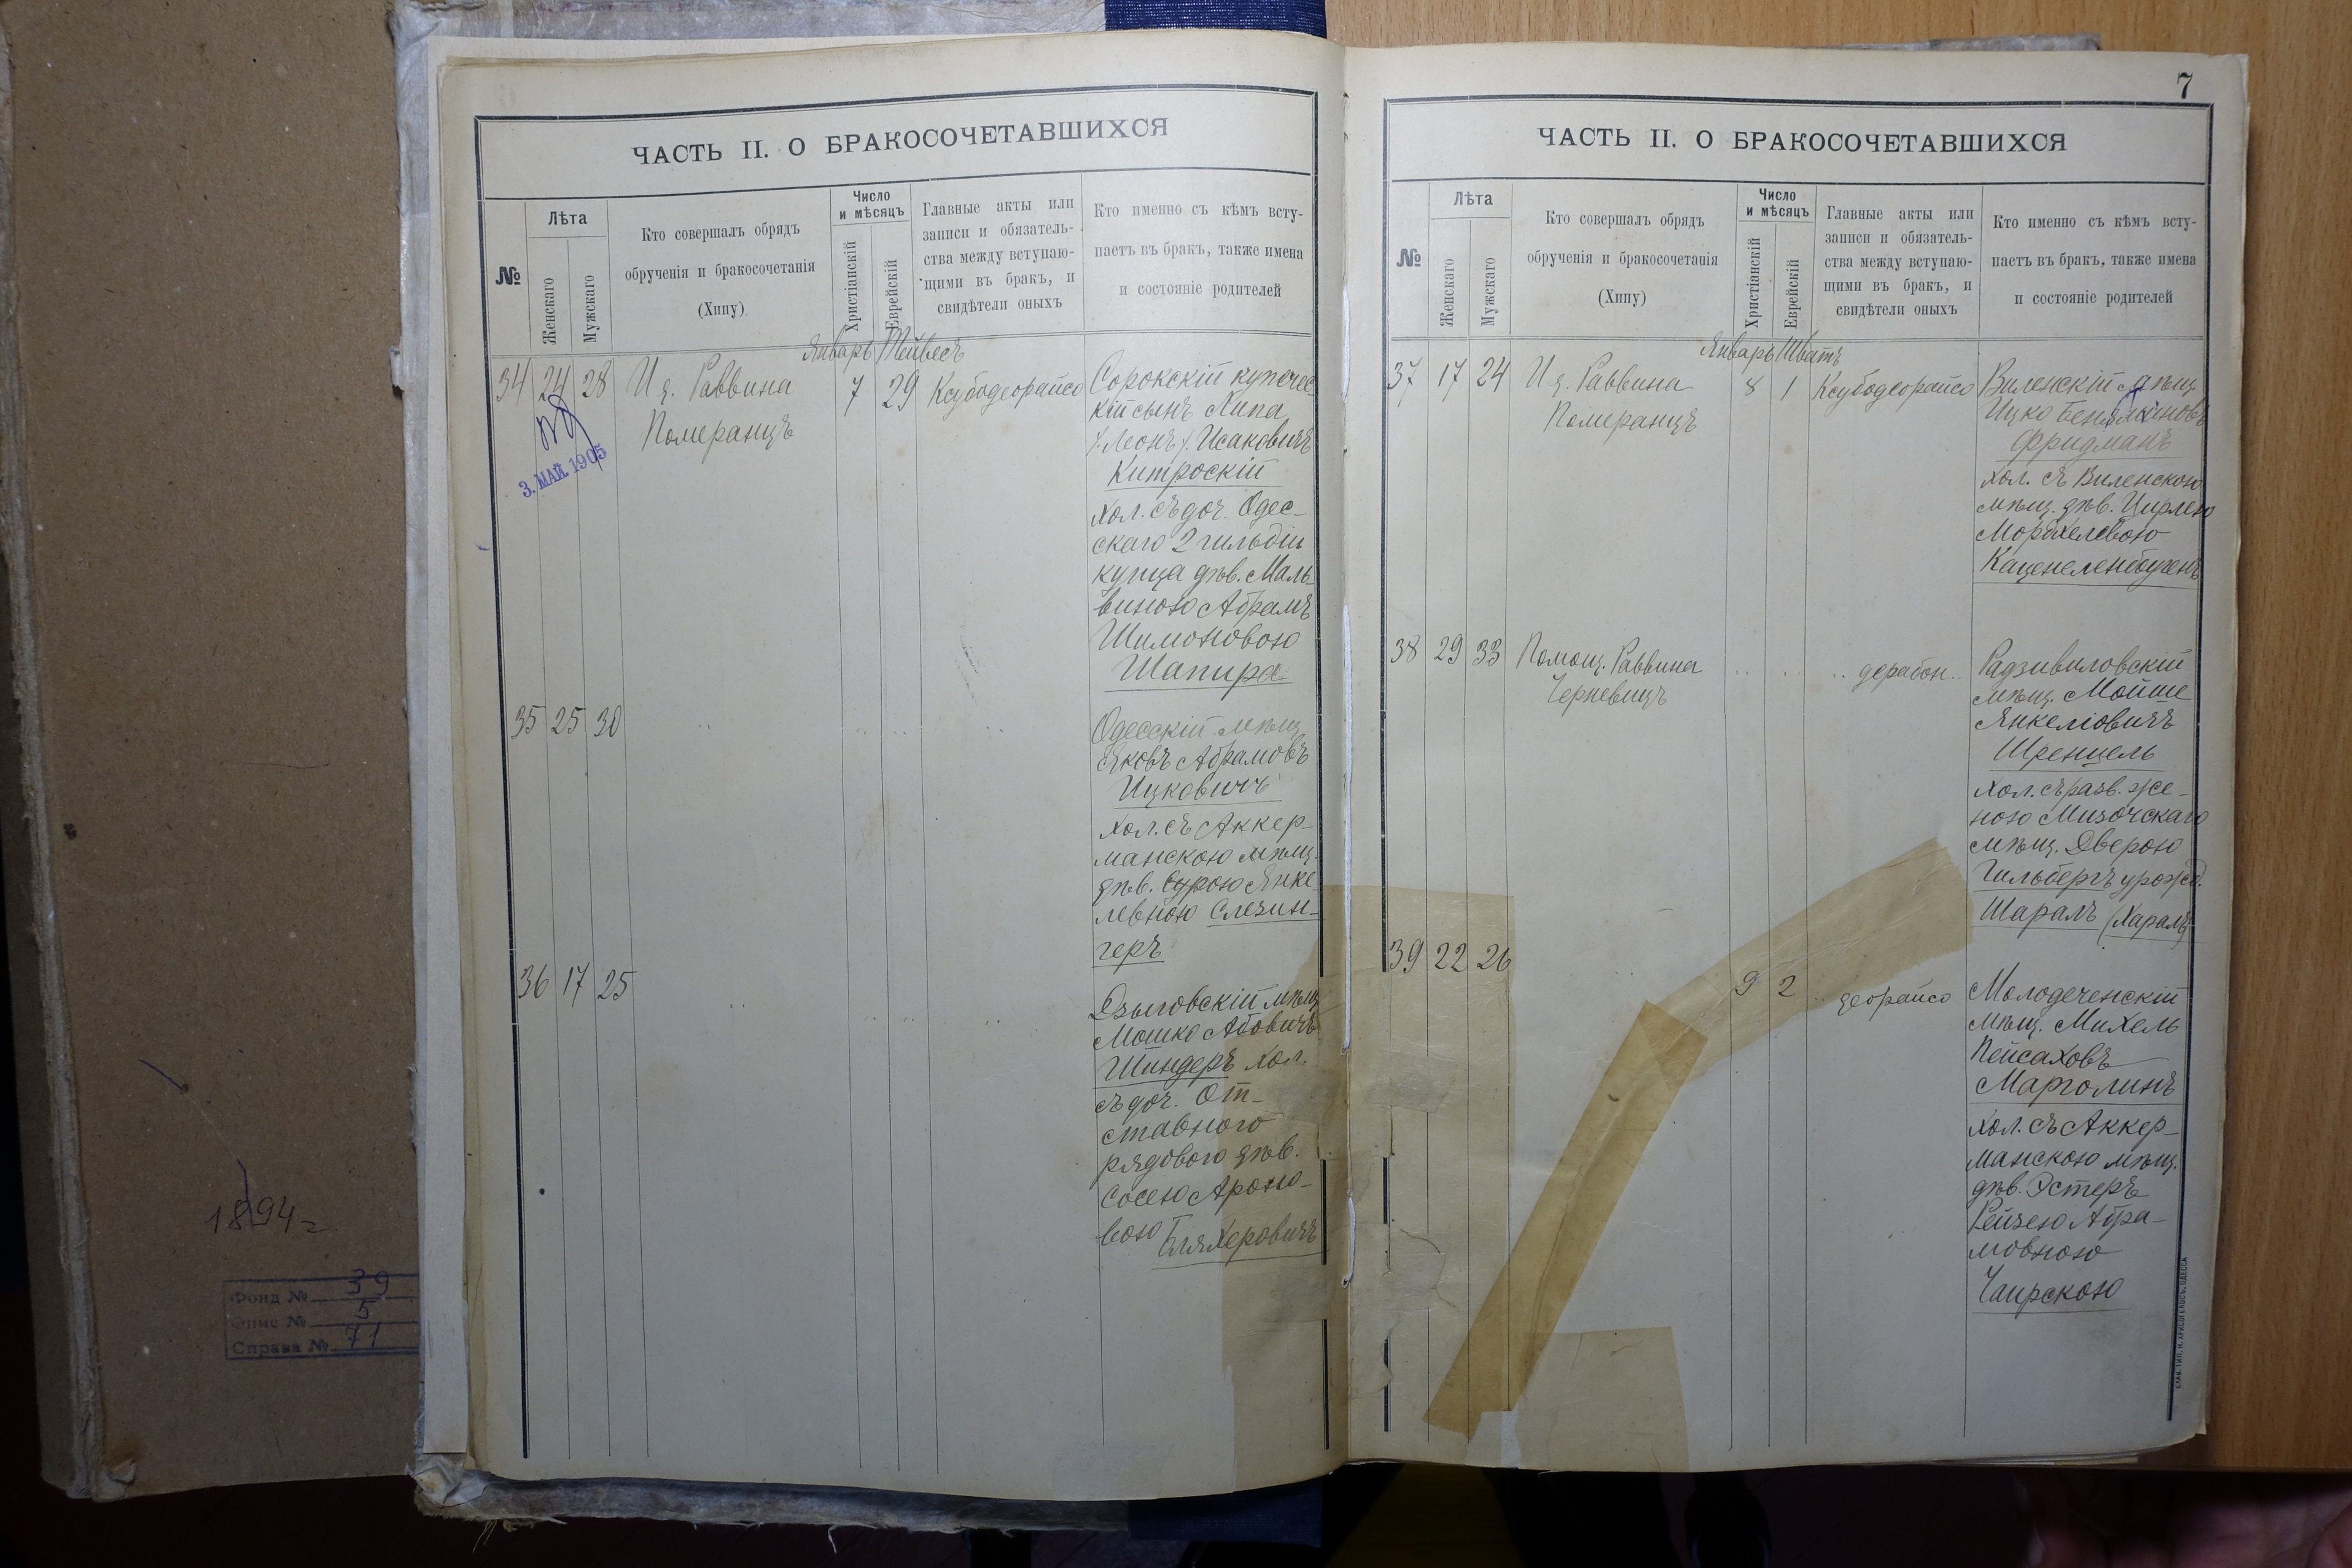 1894 г
Фонд № 39
Опис № 5
Справа № 71
ЧАСТЬ II. О БРАКОСОЧЕТАВШИХСЯ
№
Лѣта
Женскаго
Мужскаго
Кто совершалъ обрядъ
обрученія и бракосочетанія
(Хипу)
Число
и мѣсяцъ
Христіанскій
Еврейскій
Главные акты или
записи и обязатель-
ства между вступаю-
щими въ бракъ, и
свидѣтели оныхъ
Кто именно съ кѣмъ всту-
паетъ въ бракъ, также имена
и состояніе родителей
Январь Тейвесъ
34 24 28 И д. Раввина 7 29 Ксубодеорайсо
Померанцъ
3. МАЙ. 1905
Сорокскій купечес
кій сынъ Липа
/Леонъ/. Исаковичъ
Китроскій
хол. съ доч. Одес-
скаго 2 гильдіи
купца дѣв. Маль-
виною Абрамъ
Шимоновою
Шапира
35 25 30 .. .. .. ..
Одесскій мѣщ.
Яковъ Абрамовъ
Ицковичъ
хол. съ Аккер-
манскою мѣщ.
дѣв. Сурою Янке-
левною Слезин-
геръ
36 17 25 .. .. .. ..
Дзыговскій мѣщ.
Мошко Абовичъ
Шиндеръ хол.
съ доч. От-
ставного
рядового дѣв.
Сосею Ароно-
вою Бляхеровичъ
7
ЧАСТЬ II. О БРАКОСОЧЕТАВШИХСЯ
№
Лѣта
Женскаго
Мужскаго
Кто совершалъ обрядъ
обрученія и бракосочетанія
(Хипу)
Число
и мѣсяцъ
Христіанскій
Еврейскій
Главные акты или
записи и обязатель-
ства между вступаю-
щими въ бракъ, и
свидѣтели оныхъ
Кто именно съ кѣмъ всту-
паетъ въ бракъ, также имена
и состояніе родителей
Январь Шватъ
37 17 24 И д. Раввина 8 1 Ксубодеорайсо
Померанцъ
Виленскій мѣщ.
Ицко Беньяминовъ
Фридманъ
хол. съ Виленскою
мѣщ. дѣв. Цирлею
Мордхелевою
Каценеленбугенъ
38 29 33 Помощ. Раввина .. .. .. дерабон..
Черневицъ
Радзивиловскій
мѣщ. Мойше
Янкеліовичъ
Шренцель
хол. съ разв. же-
ною Мизочскаго
мѣщ. Дверою
Гильбергъ урожд.
Шаралъ (Харалъ)
39 22 26 .. 9 2 .. деорайсо
Молодеченскій
мѣщ. Михель
Пейсаховъ
Марголинъ
хол. съ Аккер-
манскою мѣщ.
дѣв. Эстеръ
Рейзею Абра-
мовною
Чаирскою